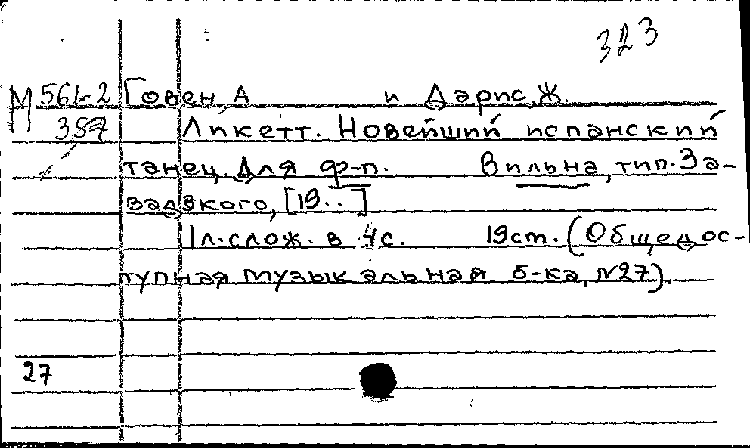 323
М 561-2 Говен, А и Дарис, Ж.
357 Ликетт. Новейший испанский
танец. Для ф-п. Вильна, тип. За-
валзкого, [19..]
1 л. слож. в 4 с. 19 ст. (Общедос-
тупная музыкальная б-ка, №27).
27